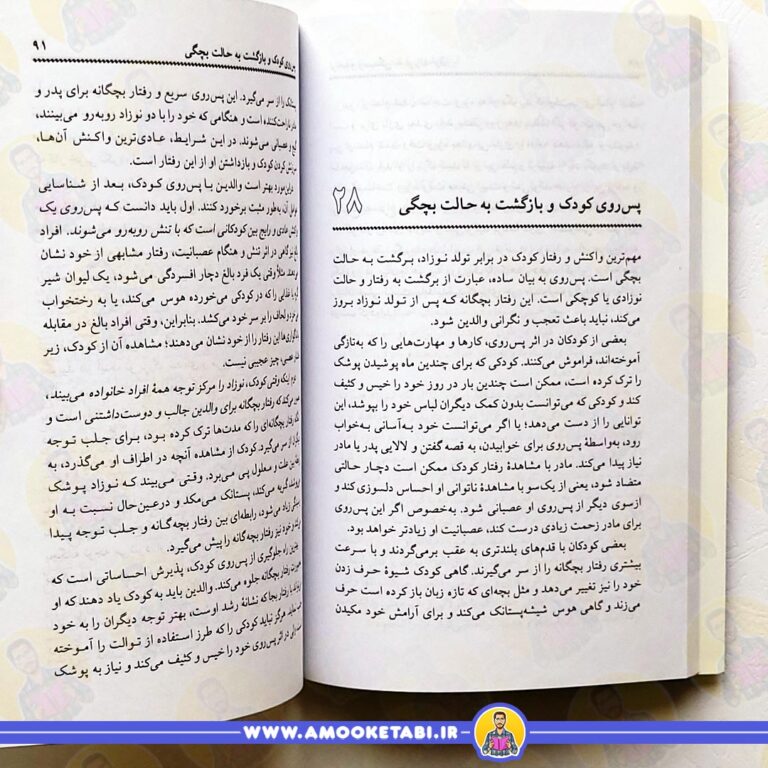 ۲۸
پس‌روی کودک و بازگشت به حالت بچگی
مهم‌ترین واکنش و رفتار کودک در برابر تولد نوزاد، برگشت به حالت
بچگی است. پس‌روی به بیان ساده، عبارت از برگشت به رفتار و حالت
نوزادی یا کوچکی است. این رفتار بچگانه که پس از تولد نوزاد بروز
می‌کند، نباید باعث تعجب و نگرانی والدین شود.
بعضی از کودکان در اثر پس‌روی، کارها و مهارت‌هایی را که به‌تازگی
آموخته‌اند، فراموش می‌کنند. کودکی که برای چندین ماه پوشیدن پوشک
را ترک کرده است، ممکن است چندین بار در روز خود را خیس و کثیف
کند و کودکی که می‌توانست بدون کمک دیگران لباس خود را بپوشد، این
توانایی را از دست می‌دهد؛ یا اگر می‌توانست خود به‌آسانی به‌خواب
رود، به‌واسطهٔ پس‌روی برای خوابیدن، به قصه گفتن و لالایی پدر یا مادر
نیاز پیدا می‌کند. مادر با مشاهدهٔ رفتار کودک ممکن است دچار حالتی
متضاد شود، یعنی از یک‌سو با مشاهدهٔ ناتوانی او احساس دلسوزی کند و
ازسوی دیگر از پس‌روی او عصبانی شود. به‌خصوص اگر این پس‌روی
برای مادر زحمت زیادی درست کند، عصبانیت او زیادتر خواهد بود.
بعضی کودکان با قدم‌های بلندتری به عقب برمی‌گردند و با سرعت
بیشتری رفتار بچگانه را از سر می‌گیرند. گاهی کودک شیوهٔ حرف زدن
خود را نیز تغییر می‌دهد و مثل بچه‌ای که تازه زبان باز کرده است حرف
می‌زند و گاهی هوس شیشه‌پستانک می‌کند و برای آرامش خود مکیدن
کودک و بازگشت به حالت بچگی ۹۱
را از سر می‌گیرد. این پس‌روی سریع و رفتار بچگانه برای پدر و
است و هنگامی که خود را با دو نوزاد روبه‌رو می‌بینند،
و عصبانی می‌شوند. در این شرایط، عادی‌ترین واکنش آن‌ها،
کردن کودک و بازداشتن او از این رفتار است.
بهتر است والدین با پس‌روی کودک، بعد از شناسایی
آن، به‌طور مثبت برخورد کنند. اول باید دانست که پس‌روی یک
عادی و رایج بین کودکانی است که با تنش روبه‌رو می‌شوند. افراد
نیز گاهی در اثر تنش و هنگام عصبانیت، رفتار مشابهی از خود نشان
مثلاً وقتی یک فرد بالغ دچار افسردگی می‌شود، یک لیوان شیر
یا غذایی را که در کودکی می‌خورده هوس می‌کند، یا به رختخواب
و لحاف را بر سر خود می‌کشد. بنابراین، وقتی افراد بالغ در مقابله
این رفتار را از خود نشان می‌دهند؛ مشاهده آن از کودک، زیر
چیز عجیبی نیست.
اینکه وقتی کودک، نوزاد را مرکز توجه همهٔ افراد خانواده می‌بیند،
که رفتار بچگانه برای والدین جالب و دوست‌داشتنی است و
رفتار بچگانه‌ای را که مدت‌ها ترک کرده بود، برای جلب توجه
از سر می‌گیرد. کودک از مشاهده آنچه در اطراف او می‌گذرد، به
علت و معلول پی می‌برد. وقتی می‌بیند که نوزاد پوشک
گریه می‌کند، پستانک می‌مکد و درعین‌حال نسبت به او
زیاد می‌شود، رابطه‌ای بین رفتار بچه‌گانه و جلب توجه پیدا
و خود نیز رفتار بچه‌گانه را پیش می‌گیرد.
راه جلوگیری از پس‌روی کودک، پذیرش احساساتی است که
رفتار بچگانه جلوه می‌کند. والدین باید به کودک یاد دهند که او
با رفتار بجا که نشانهٔ رشد اوست، بهتر توجه دیگران را به خود
هرگز نباید کودکی را که طرز استفاده از توالت را آموخته
در اثر پس‌روی خود را خیس و کثیف می‌کند و نیاز به پوشک
WWW.AMOOKETABI.IR